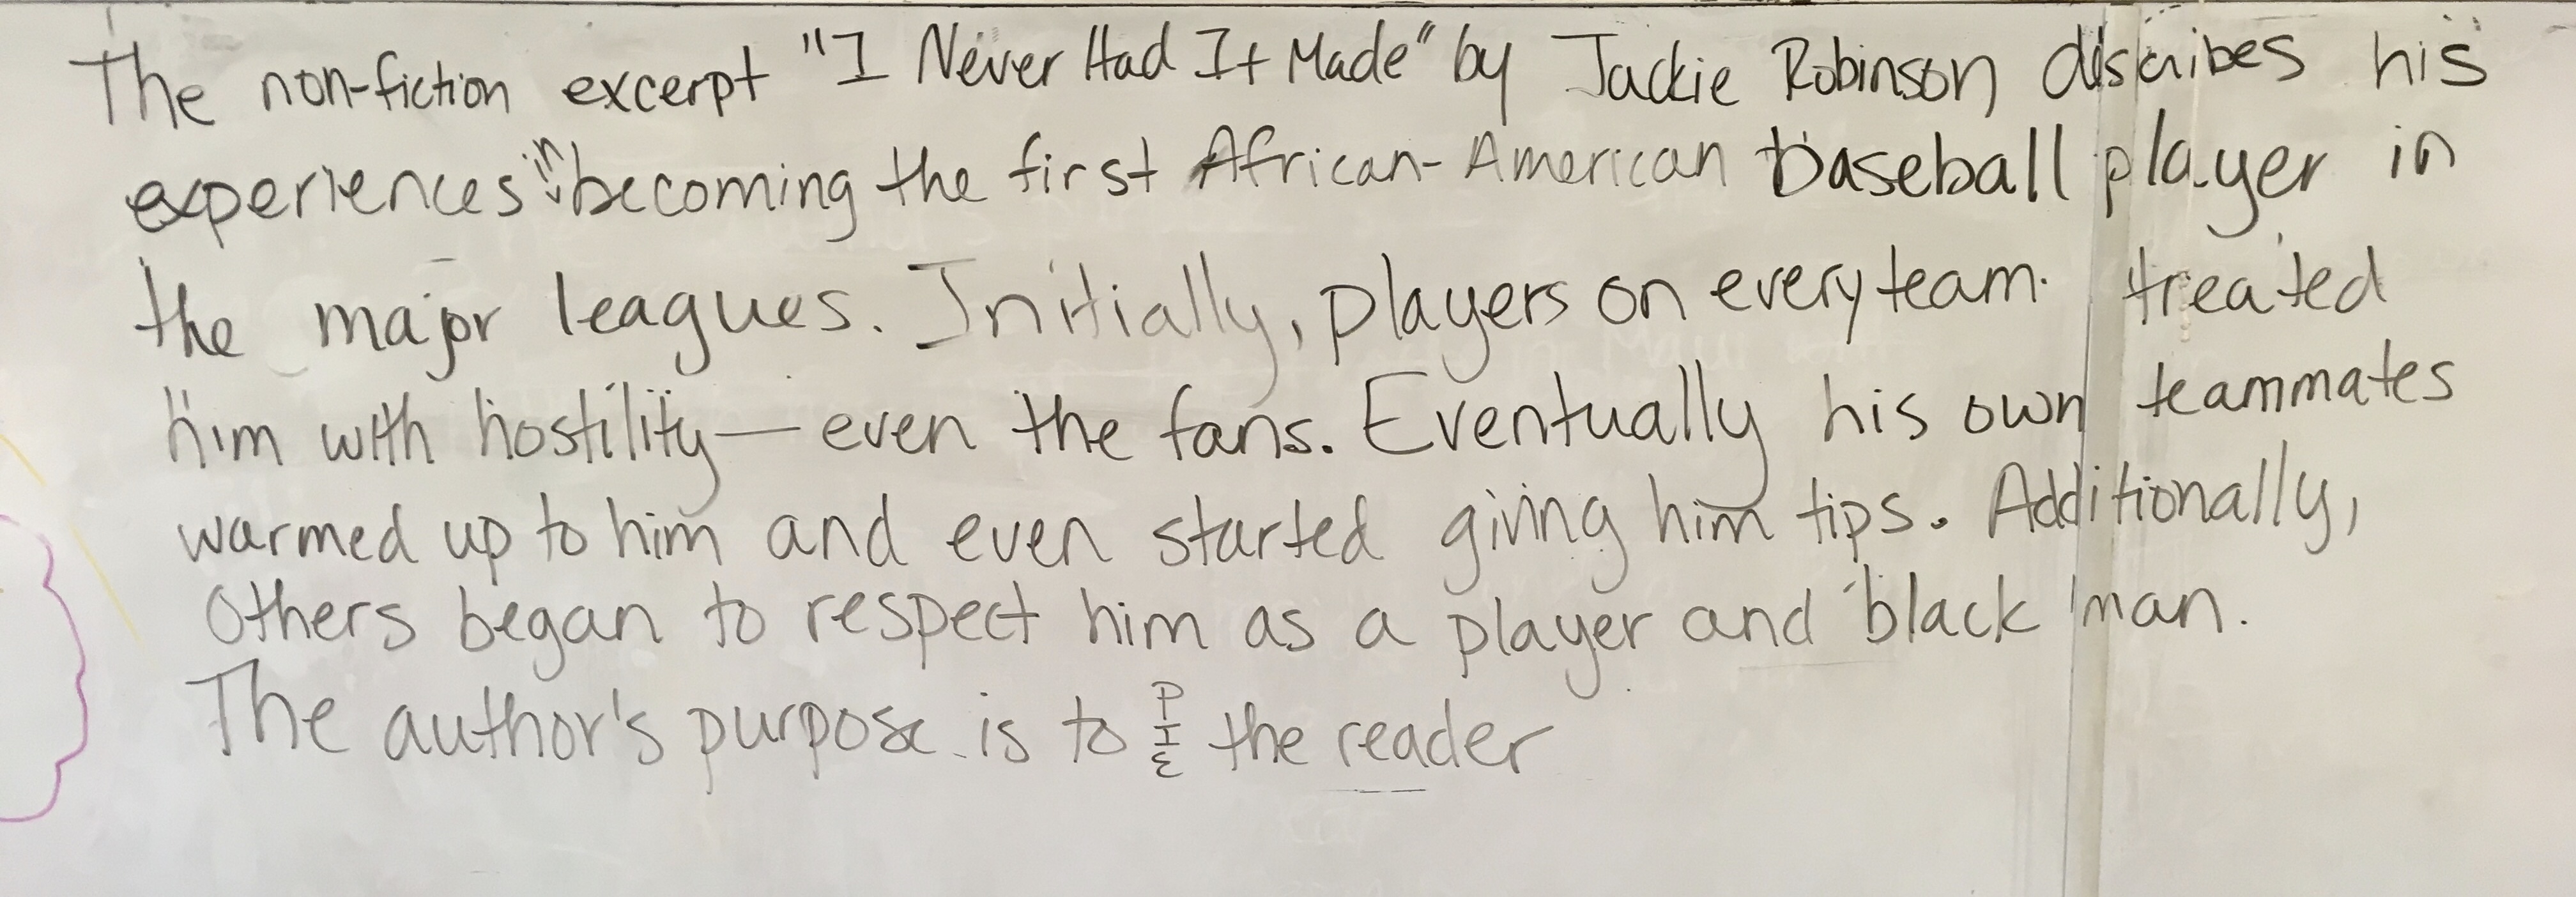 The non-fiction excerpt "I Never Had It Made" by Jackie Robinson discribes his
experiences in becoming the first African-American baseball player in
the major leagues. Initially, players on every team treated
him with hostility—even the fans. Eventually his own teammates
warmed up to him and even started giving him tips. Additionally,
others began to respect him as a player and black man.
The author's purpose is to P I E the reader